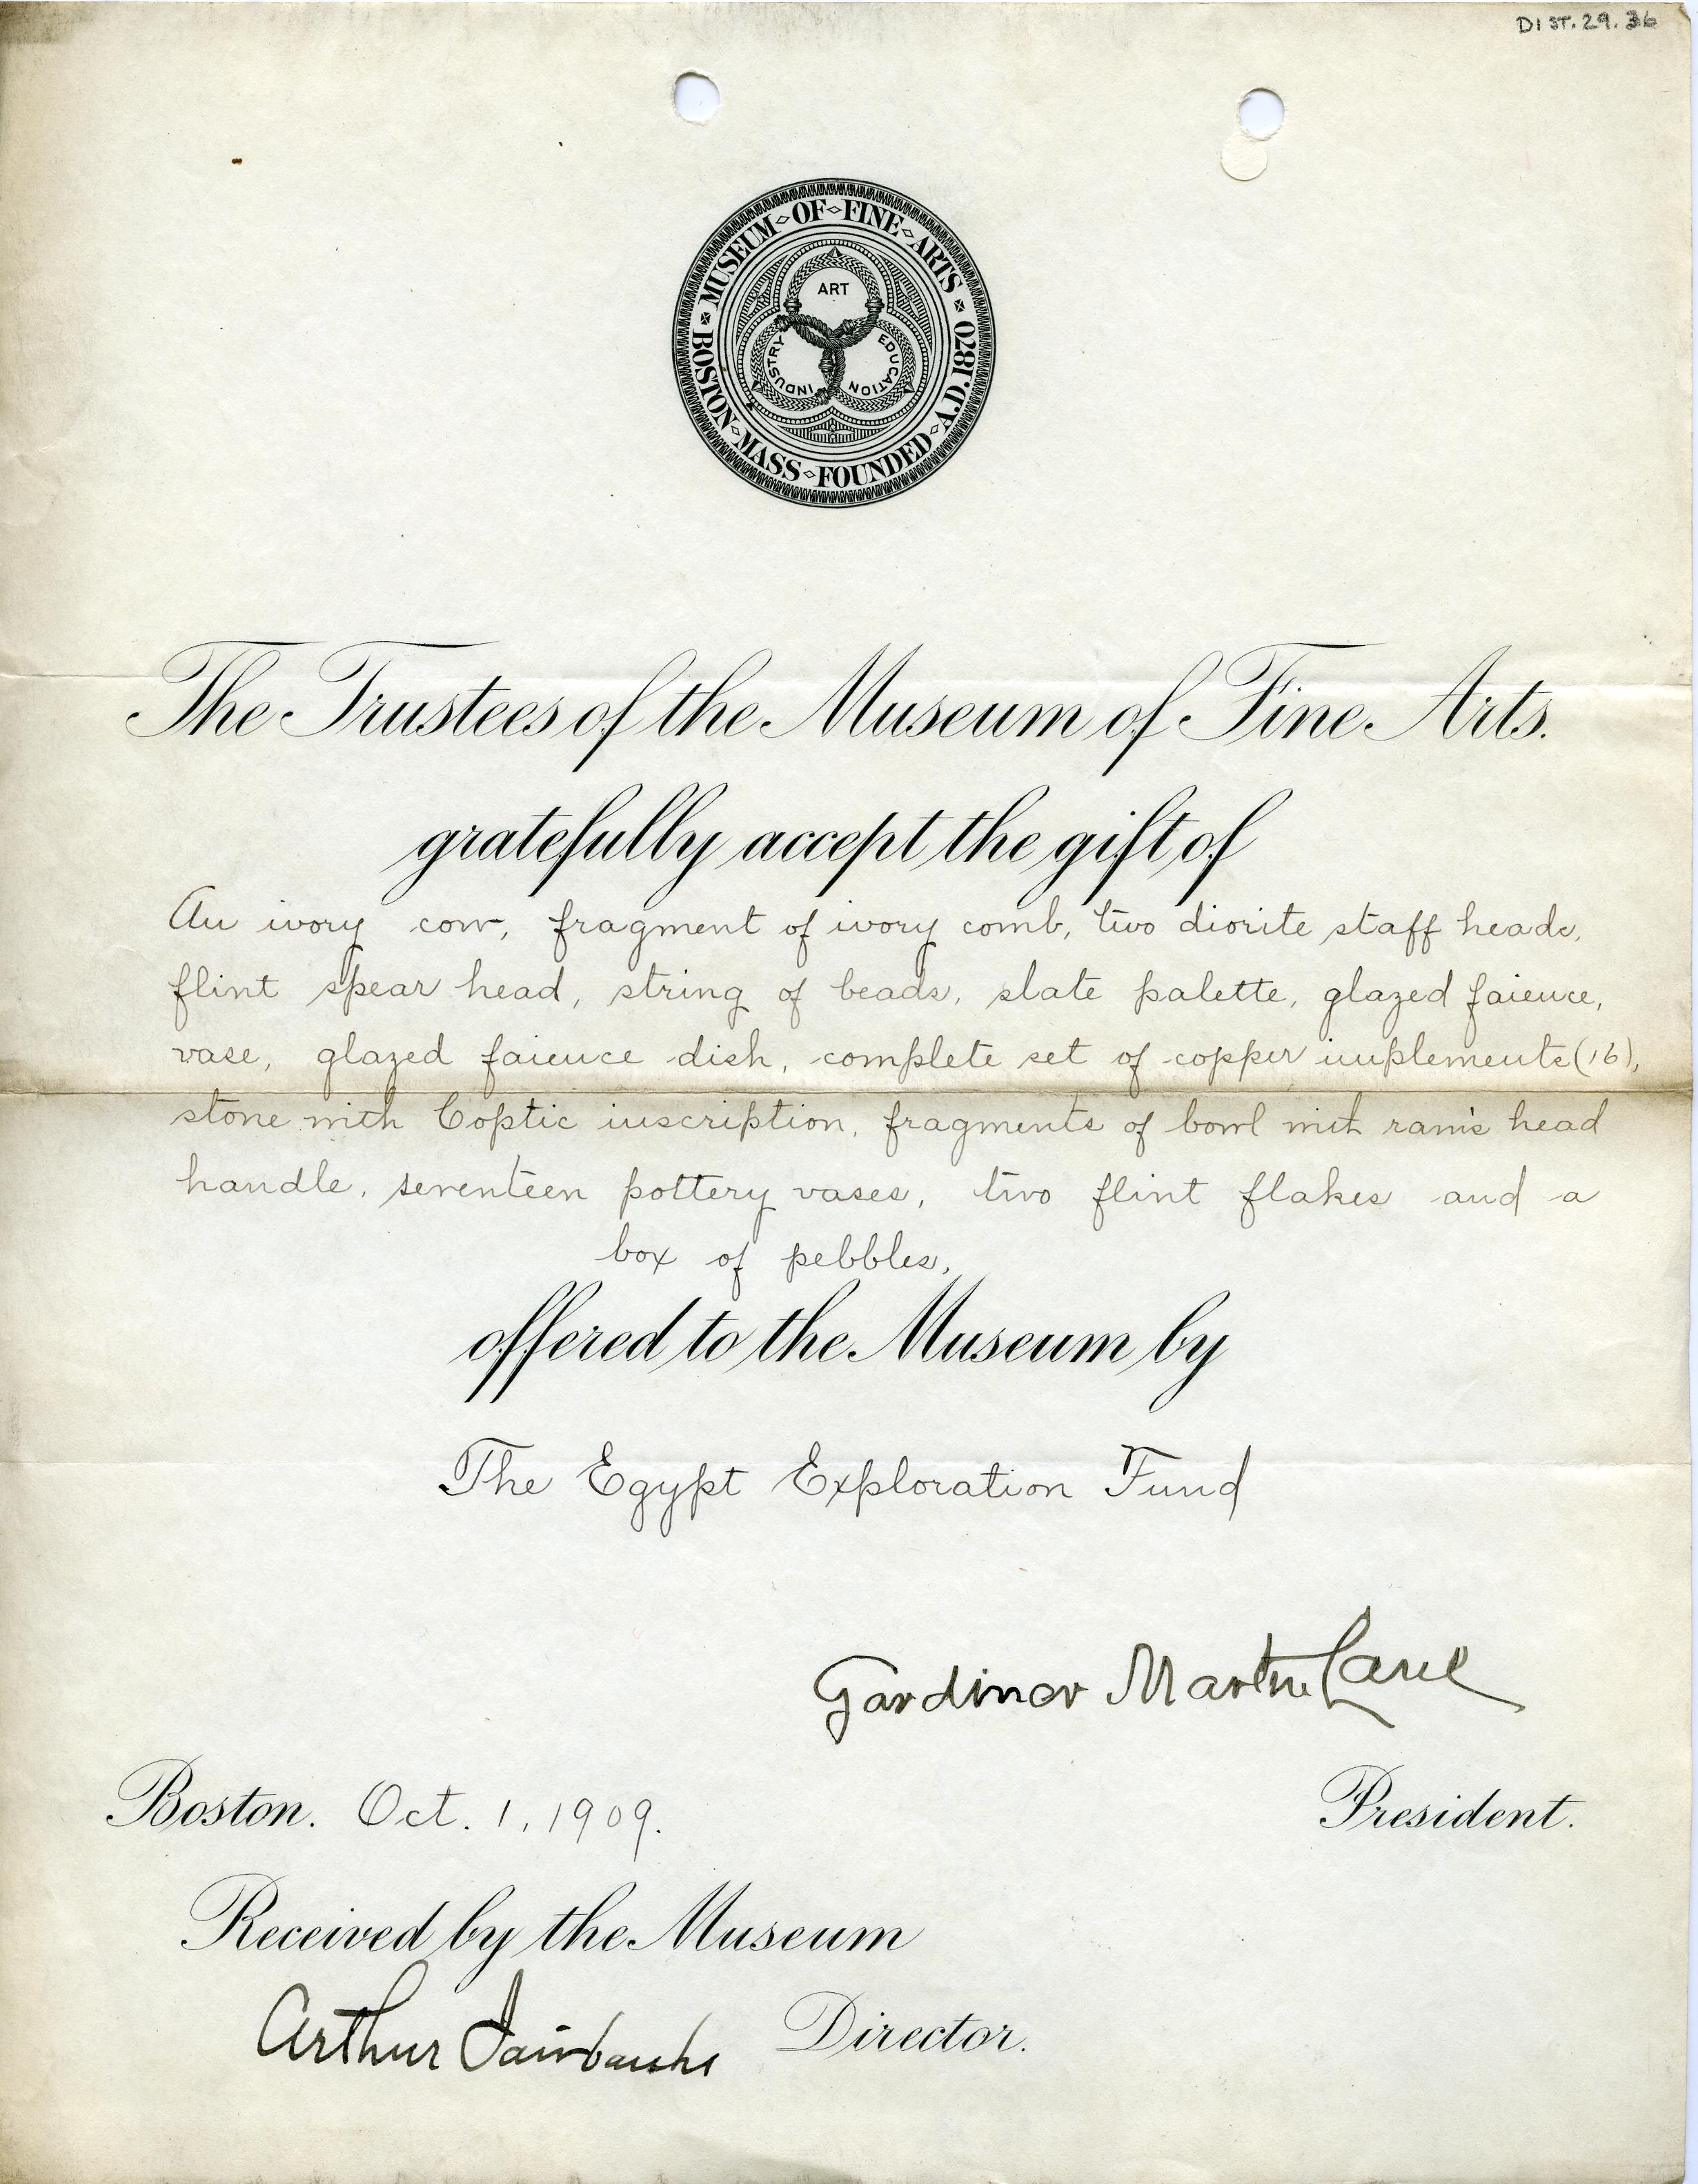 DIST.29.36
MUSEUM OF FINE ARTS
BOSTON MASS FOUNDED A.D. 1870
ART
INDUSTRY
EDUCATION
The Trustees of the Museum of Fine Arts.
gratefully accept the gift of
An ivory cow, fragment of ivory comb, two diorite staff heads,
flint spear head, string of beads, slate palette, glazed faience,
vase, glazed faience dish, complete set of copper implements (16),
stone with Coptic inscription, fragments of bowl with ram's head
handle, seventeen pottery vases, two flint flakes and a
box of pebbles,
offered to the Museum by
The Egypt Exploration Fund
Gardiner Martin Lane
President.
Boston. Oct. 1, 1909.
Received by the Museum
Arthur Fairbanks Director.